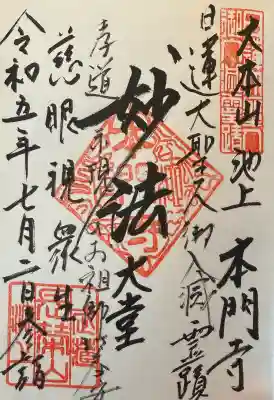 大本山 池上 本門寺
日蓮大聖人御入滅霊蹟
妙法 大堂
孝道示現のお祖師さま
慈眼視衆生
令和五年七月二日参詣